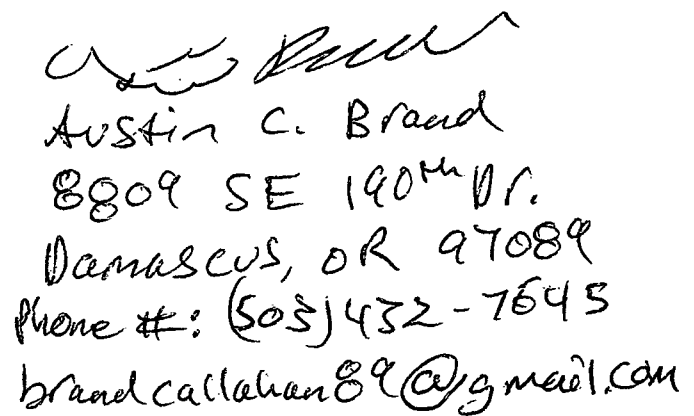 Austin C. Braud
8809 SE 190th Dr.
Damascus, OR 97089
Phone #: (503) 432-7645
braudcallahan89@gmail.com